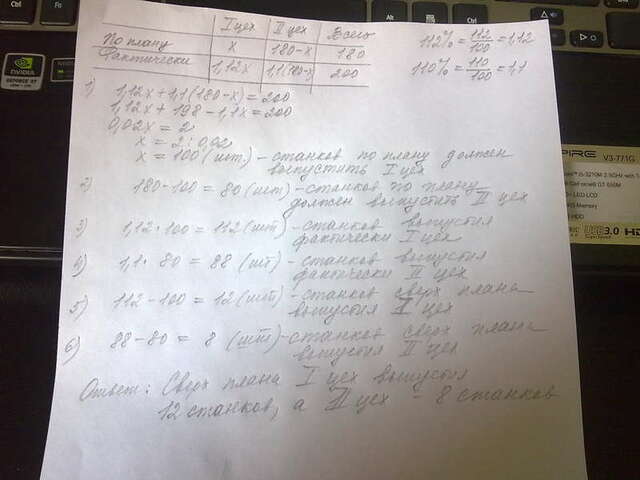 I цех II цех Всего
По плану x 180-x 180
Фактически 1,12x 1,1(180-x) 200
112% = 112/100 = 1,12
110% = 110/100 = 1,1
1) 1,12x + 1,1(180-x) = 200
1,12x + 198 - 1,1x = 200
0,02x = 2
x = 2 : 0,02
x = 100 (шт) - станков по плану должен
выпустить I цех
2) 180-100 = 80 (шт) - станков по плану
должен выпустить II цех
3) 1,12·100 = 112 (шт) - станков выпустил
фактически I цех
4) 1,1·80 = 88 (шт) - станков выпустил
фактически II цех
5) 112-100 = 12 (шт) - станков сверх плана
выпустил I цех
6) 88-80 = 8 (шт) - станков сверх плана
выпустил II цех
Ответ: Сверх плана I цех выпустил
12 станков, а II цех - 8 станков
NVIDIA
GEFORCE
Alt
Ctrl
PIRE
V3-771G
LED LCD
Memory
HDD
USB 3.0